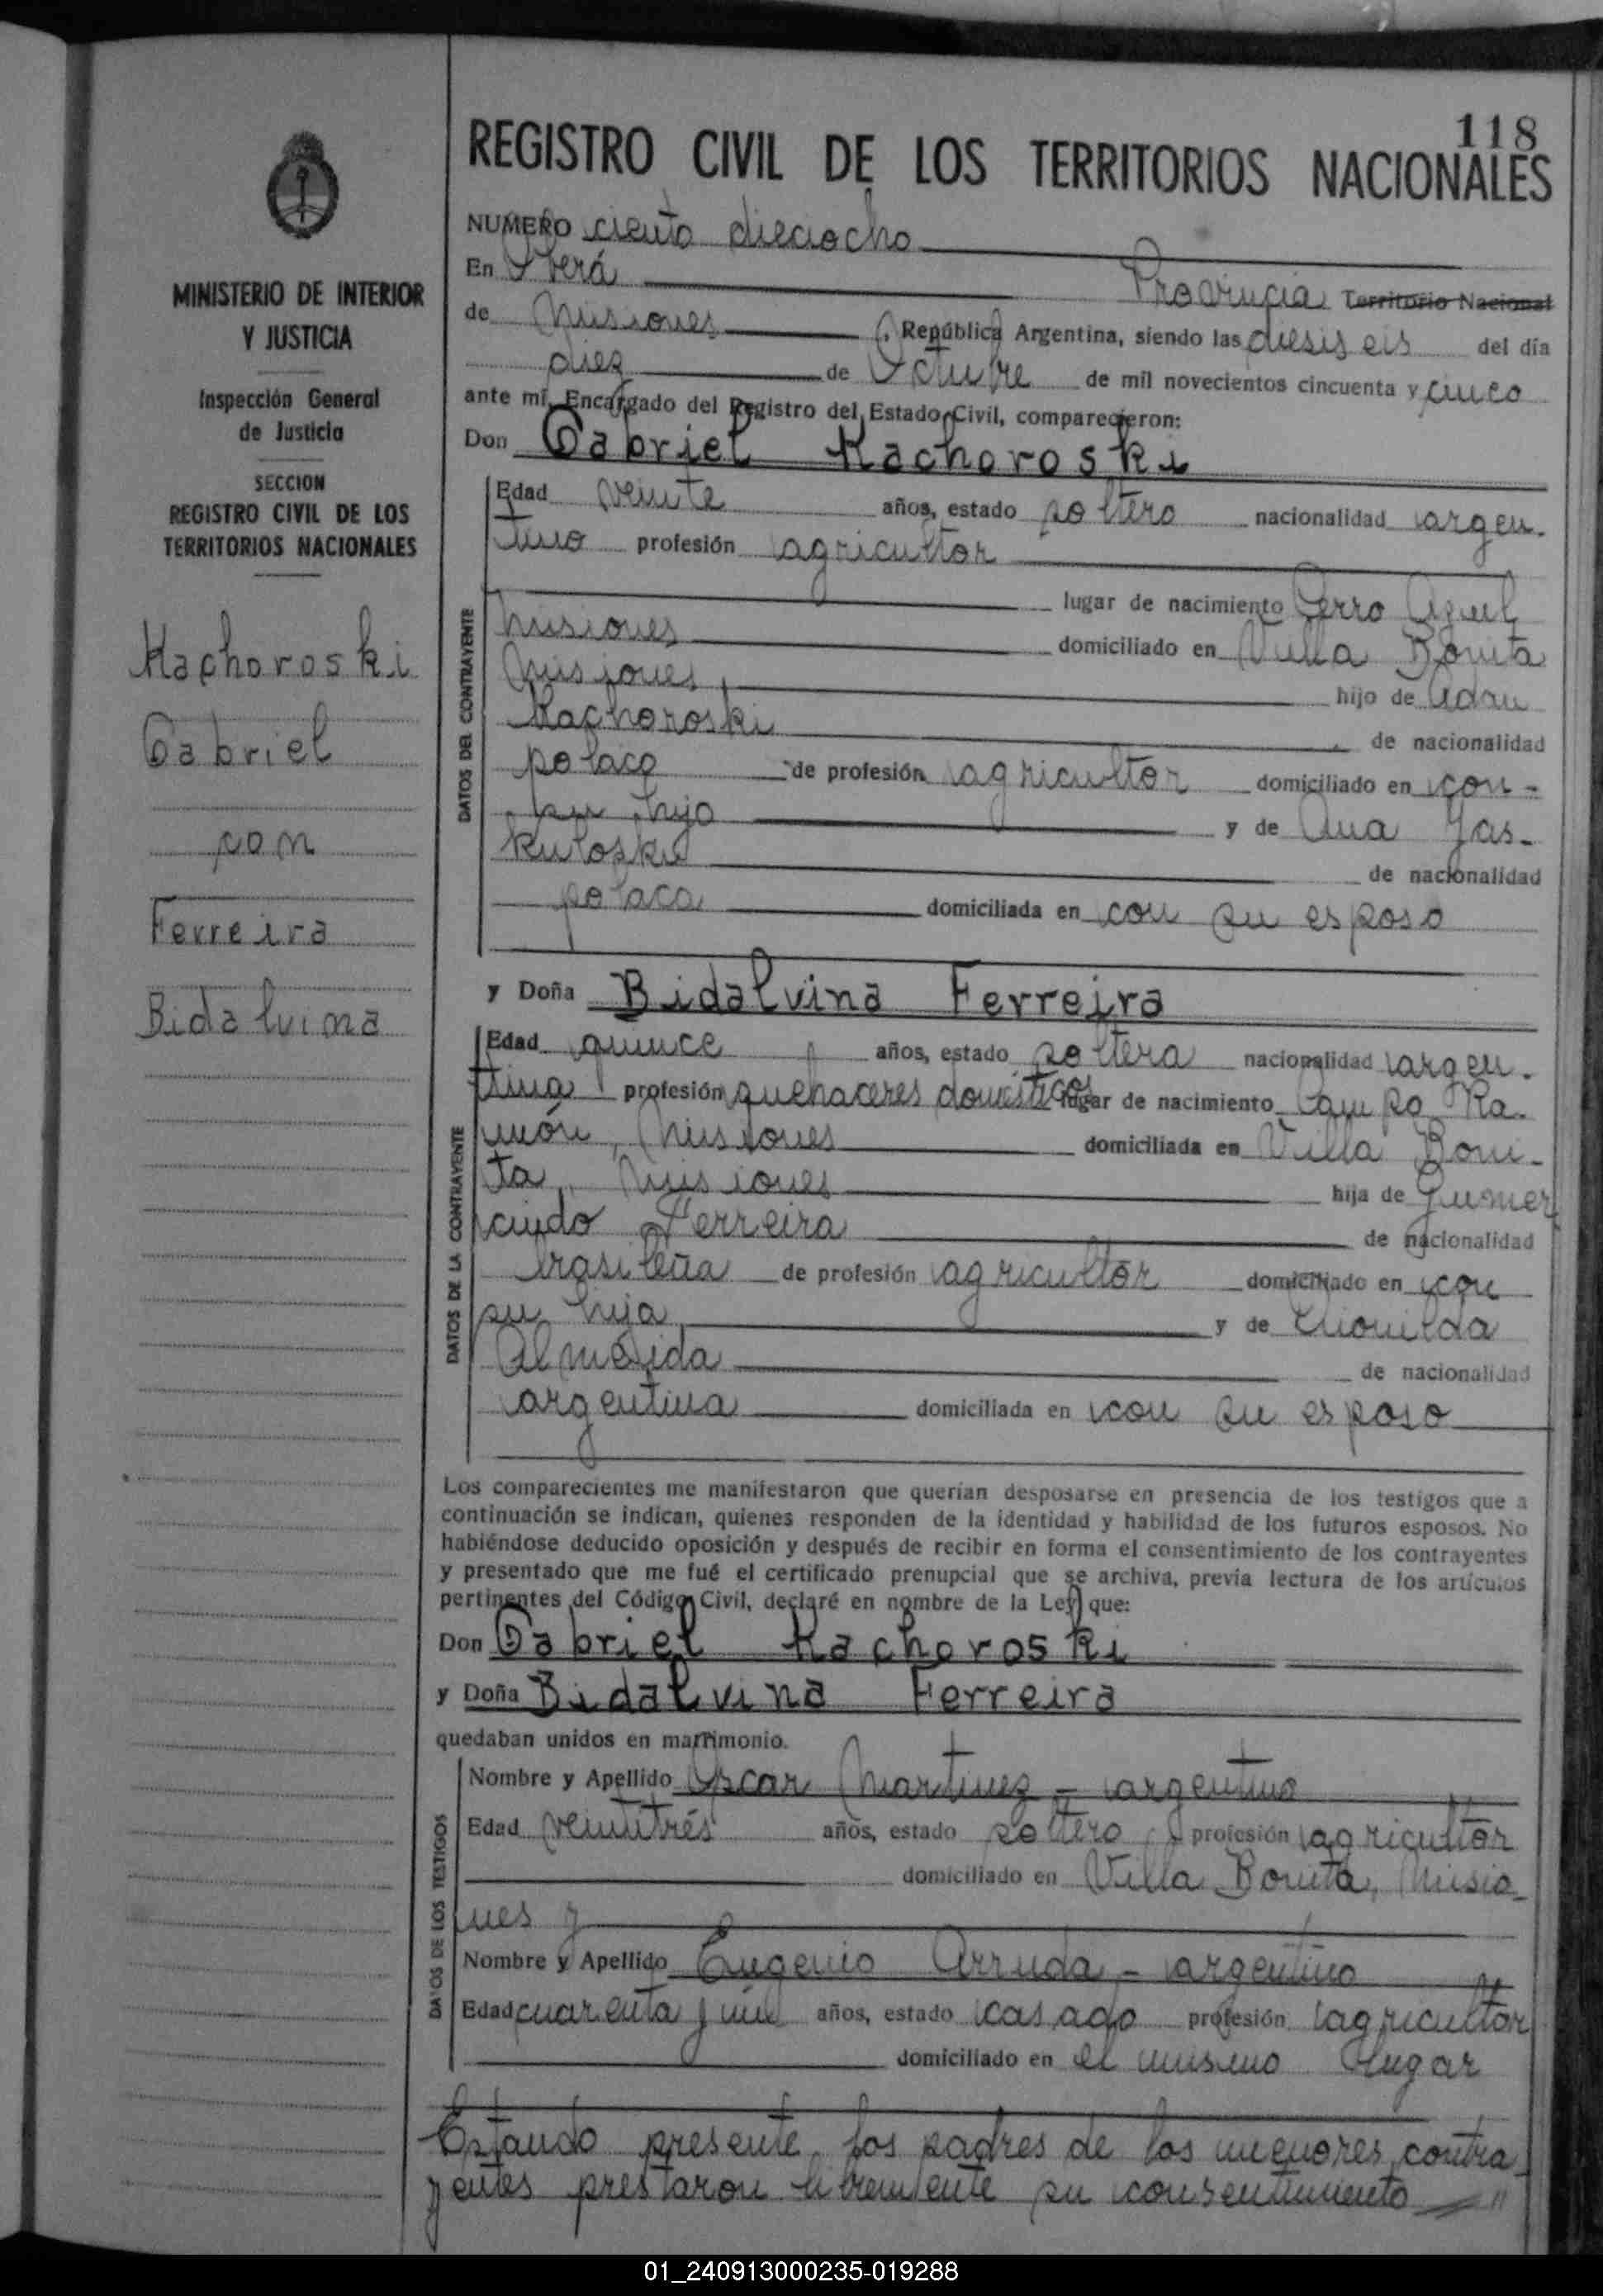 118
REGISTRO CIVIL DE LOS TERRITORIOS NACIONALES
MINISTERIO DE INTERIOR
Y JUSTICIA
Inspección General
de Justicia
SECCION
REGISTRO CIVIL DE LOS
TERRITORIOS NACIONALES
Kachoroski
Gabriel
con
Ferreira
Bidalvina
NUMERO ciento dieciocho
En Oberá Provincia Territorio Nacional
de Misiones, República Argentina, siendo las diesis eis del día
diez de Octubre de mil novecientos cincuenta y cinco
ante mí, Encargado del Registro del Estado Civil, comparecieron:
Don Gabriel Kachoroski
DATOS DEL CONTRAYENTE
Edad veinte años, estado soltero nacionalidad argen-
tino profesión agricultor
lugar de nacimiento Cerro Azul
Misiones domiciliado en Villa Bonita
Misiones, hijo de Adan
Kachoroski de nacionalidad
polaco de profesión agricultor domiciliado en con-
su hijo y de Ana Jas-
kuloski de nacionalidad
polaca domiciliada en con su esposo
y Doña Bidalvina Ferreira
DATOS DE LA CONTRAYENTE
Edad quince años, estado soltera nacionalidad argen-
tina profesión quehaceres domésticos lugar de nacimiento Campo Ra-
món, Misiones domiciliada en Villa Boni-
ta, Misiones hija de Gumer
cindo Ferreira de nacionalidad
brasileña de profesión agricultor domiciliado en con
su hija y de
Almeida de nacionalidad
argentina domiciliada en con su esposo
Los comparecientes me manifestaron que querían desposarse en presencia de los testigos que a
continuación se indican, quienes responden de la identidad y habilidad de los futuros esposos. No
habiéndose deducido oposición y después de recibir en forma el consentimiento de los contrayentes
y presentado que me fué el certificado prenupcial que se archiva, previa lectura de los artículos
pertinentes del Código Civil, declaré en nombre de la Ley que:
Don Gabriel Kachoroski
y Doña Bidalvina Ferreira
quedaban unidos en matrimonio.
DATOS DE LOS TESTIGOS
Nombre y Apellido Oscar Martinez - argentino
Edad veintitrés años, estado soltero profesión agricultor
domiciliado en Villa Bonita, Misio-
nes y
Nombre y Apellido Eugenio Arruda - argentino
Edad cuarenta y un años, estado casado profesión agricultor
domiciliado en el mismo lugar
Estando presente los padres de los menores contra-
yentes prestaron libremente su consentimiento
01_240913000235-019288